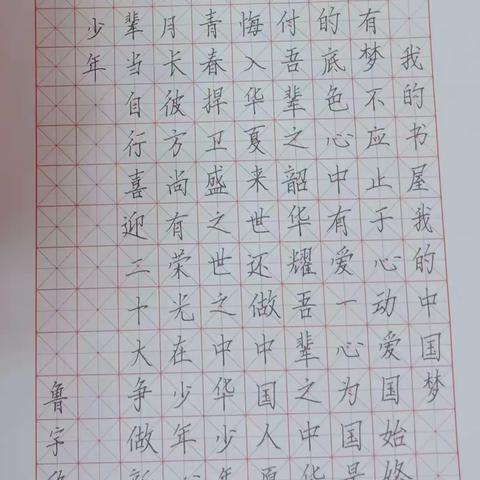 我的书屋我的中国梦
有梦不应止于心动爱国始终
的底色心中有爱一心为国是
付吾辈之韶华耀吾辈之中华
悔入华夏来世还做中国人愿
青春捍卫盛之世之中华少年
月长彼方尚有荣光在少年
辈当自行喜迎三十大争做新
少年
鲁宇